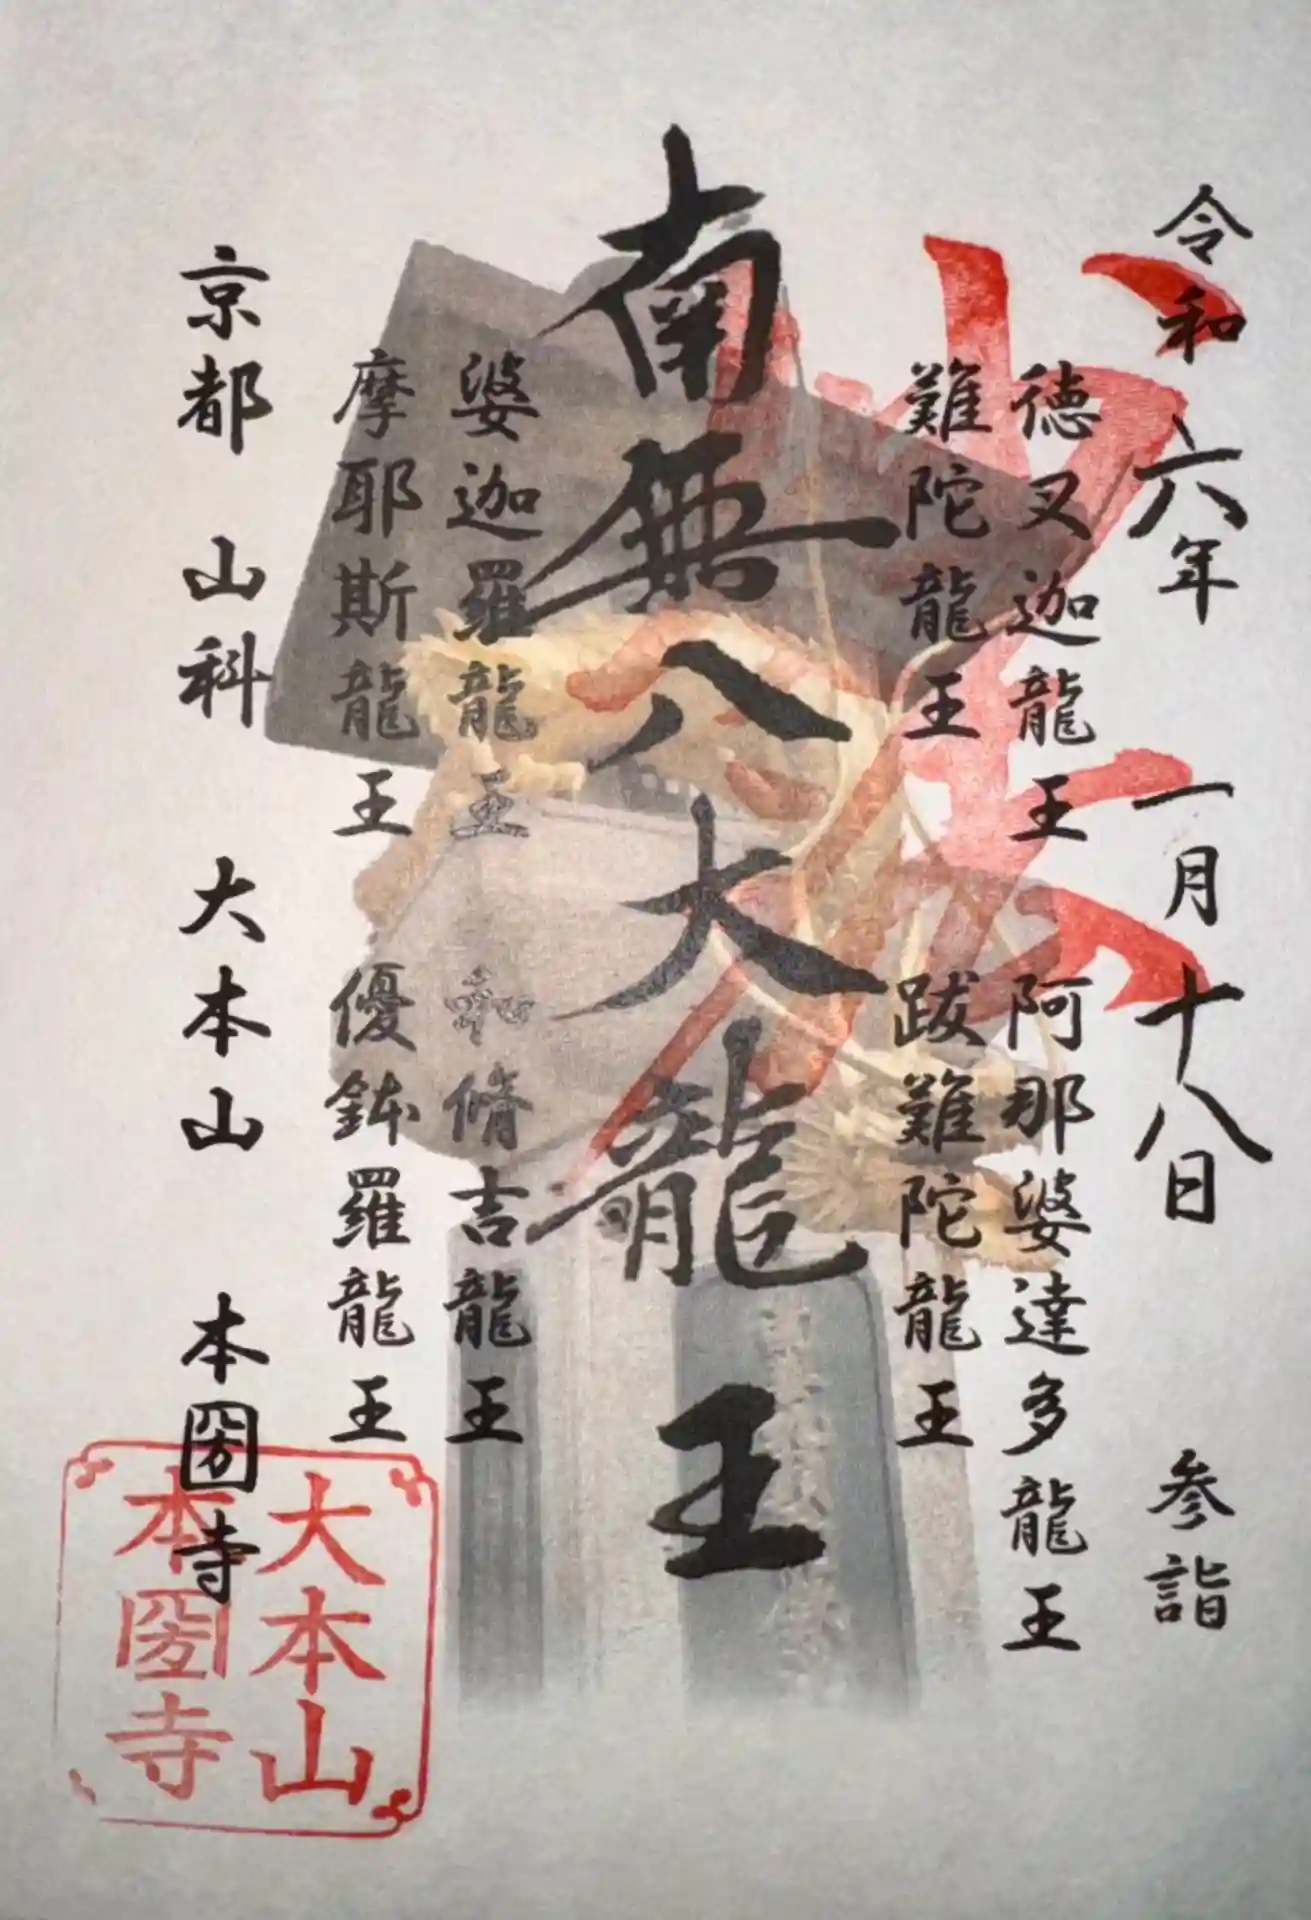 令和六年 一月十八日 参詣
徳叉迦龍王 阿那婆達多龍王
難陀龍王 跋難陀龍王
南無八大龍王
婆迦羅龍王 和脩吉龍王
摩耶斯龍王 優鉢羅龍王
京都 山科 大本山 本圀寺
大本山
本圀寺